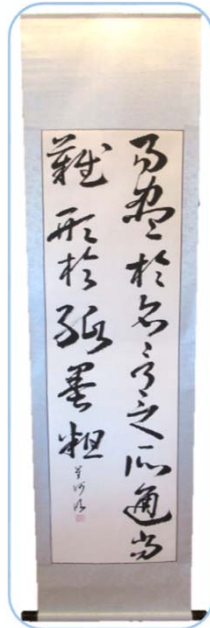 易盡於名言々之所通尚
難形於紙墨粗